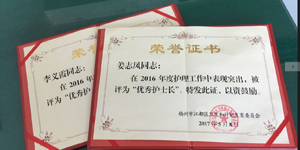 李义霞同志:
在 2016 年
评为“优秀护
荣誉证书
姜志凤同志:
在 2016 年度护理工作中表现突出,被
评为“优秀护士长”,特发此证,以资鼓励。
扬州市江都区卫生和计划生育委员会
2017年5月